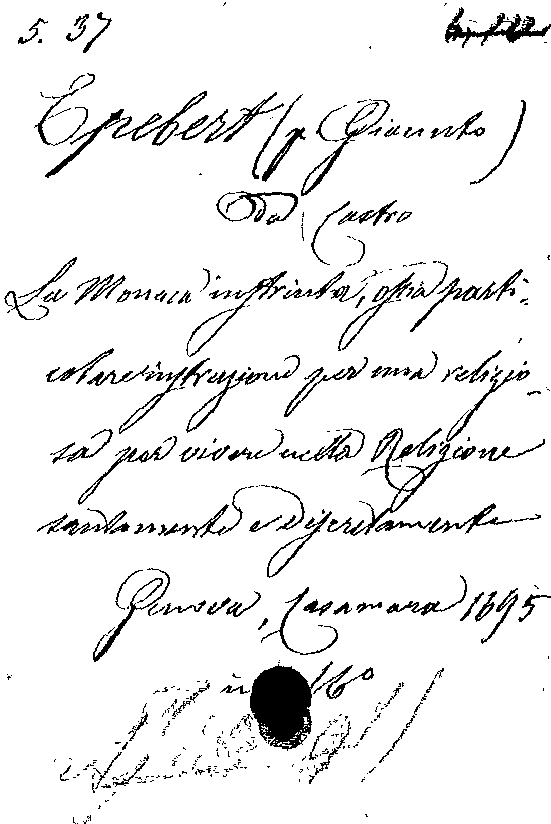 5. 37
Epebert (p. Giacinto)
da Castro
La Monaca instruita, ossia parti-
colare instruzione per una religio-
sa per vivere nella Religione
santamente e discretamente
Genova, Casamara 1695
in 16º